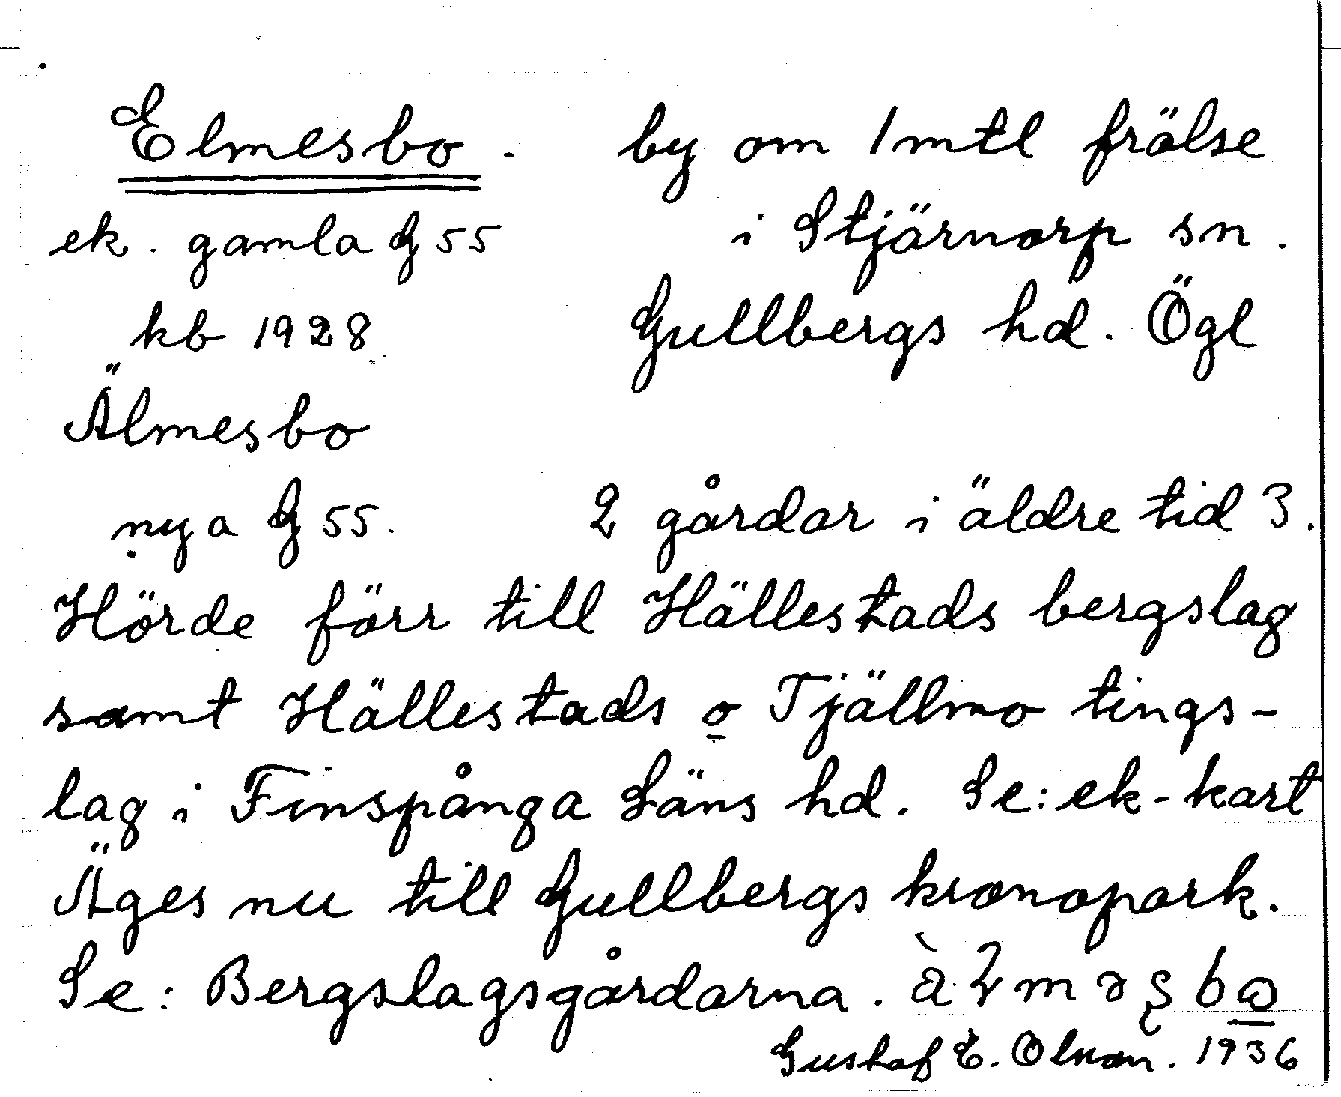 Elmesbo. by om 1 mtl frälse
ek. gamla G 55 i Stjärnorp sn.
kb 1928 Gullbergs hd. Ögl
Älmesbo
nya G 55. 2 gårdar i äldre tid 3.
Hörde förr till Hällestads bergslag
samt Hällestads o Tjällmo tings-
lag i Finspånga Läns hd. Se: ek-kart
Äges nu till Gullbergs kronopark.
Se: Bergslagsgårdarna.
Gustaf E. Olsson. 1936